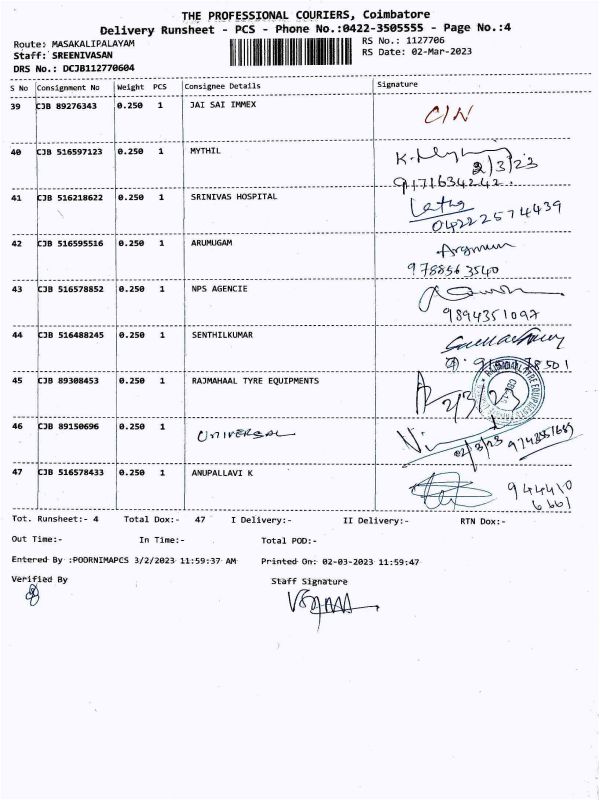 THE PROFESSIONAL COURIERS, Coimbatore
Delivery Runsheet - PCS - Phone No.:0422-3505555 - Page No.:4
Route: MASAKALIPALAYAM
RS No.: 1127706
Staff: SREENIVASAN
RS Date: 02-Mar-2023
DRS No.: DCJB112770604
S No Consignment No Weight PCS Consignee Details Signature
39 CJB 89276343 0.250 1 JAI SAI IMMEX
C/N
40 CJB 516597123 0.250 1 MYTHIL
2/3/23
9171634242.
41 CJB 516218622 0.250 1 SRINIVAS HOSPITAL
Latha
04222574439
42 CJB 516595516 0.250 1 ARUMUGAM
9788563540
43 CJB 516578852 0.250 1 NPS AGENCIE
9894351097
44 CJB 516488245 0.250 1 SENTHILKUMAR
45 CJB 89308453 0.250 1 RAJMAHAAL TYRE EQUIPMENTS
2/3/23
46 CJB 89150696 0.250 1 UNIVERSAL
02/3/23
47 CJB 516578433 0.250 1 ANUPALLAVI K
944410
6661
Tot. Runsheet:- 4 Total Dox:- 47 I Delivery:- II Delivery:- RTN Dox:-
Out Time:- In Time:- Total POD:-
Entered By :POORNIMAPCS 3/2/2023 11:59:37 AM Printed On: 02-03-2023 11:59:47
Verified By Staff Signature